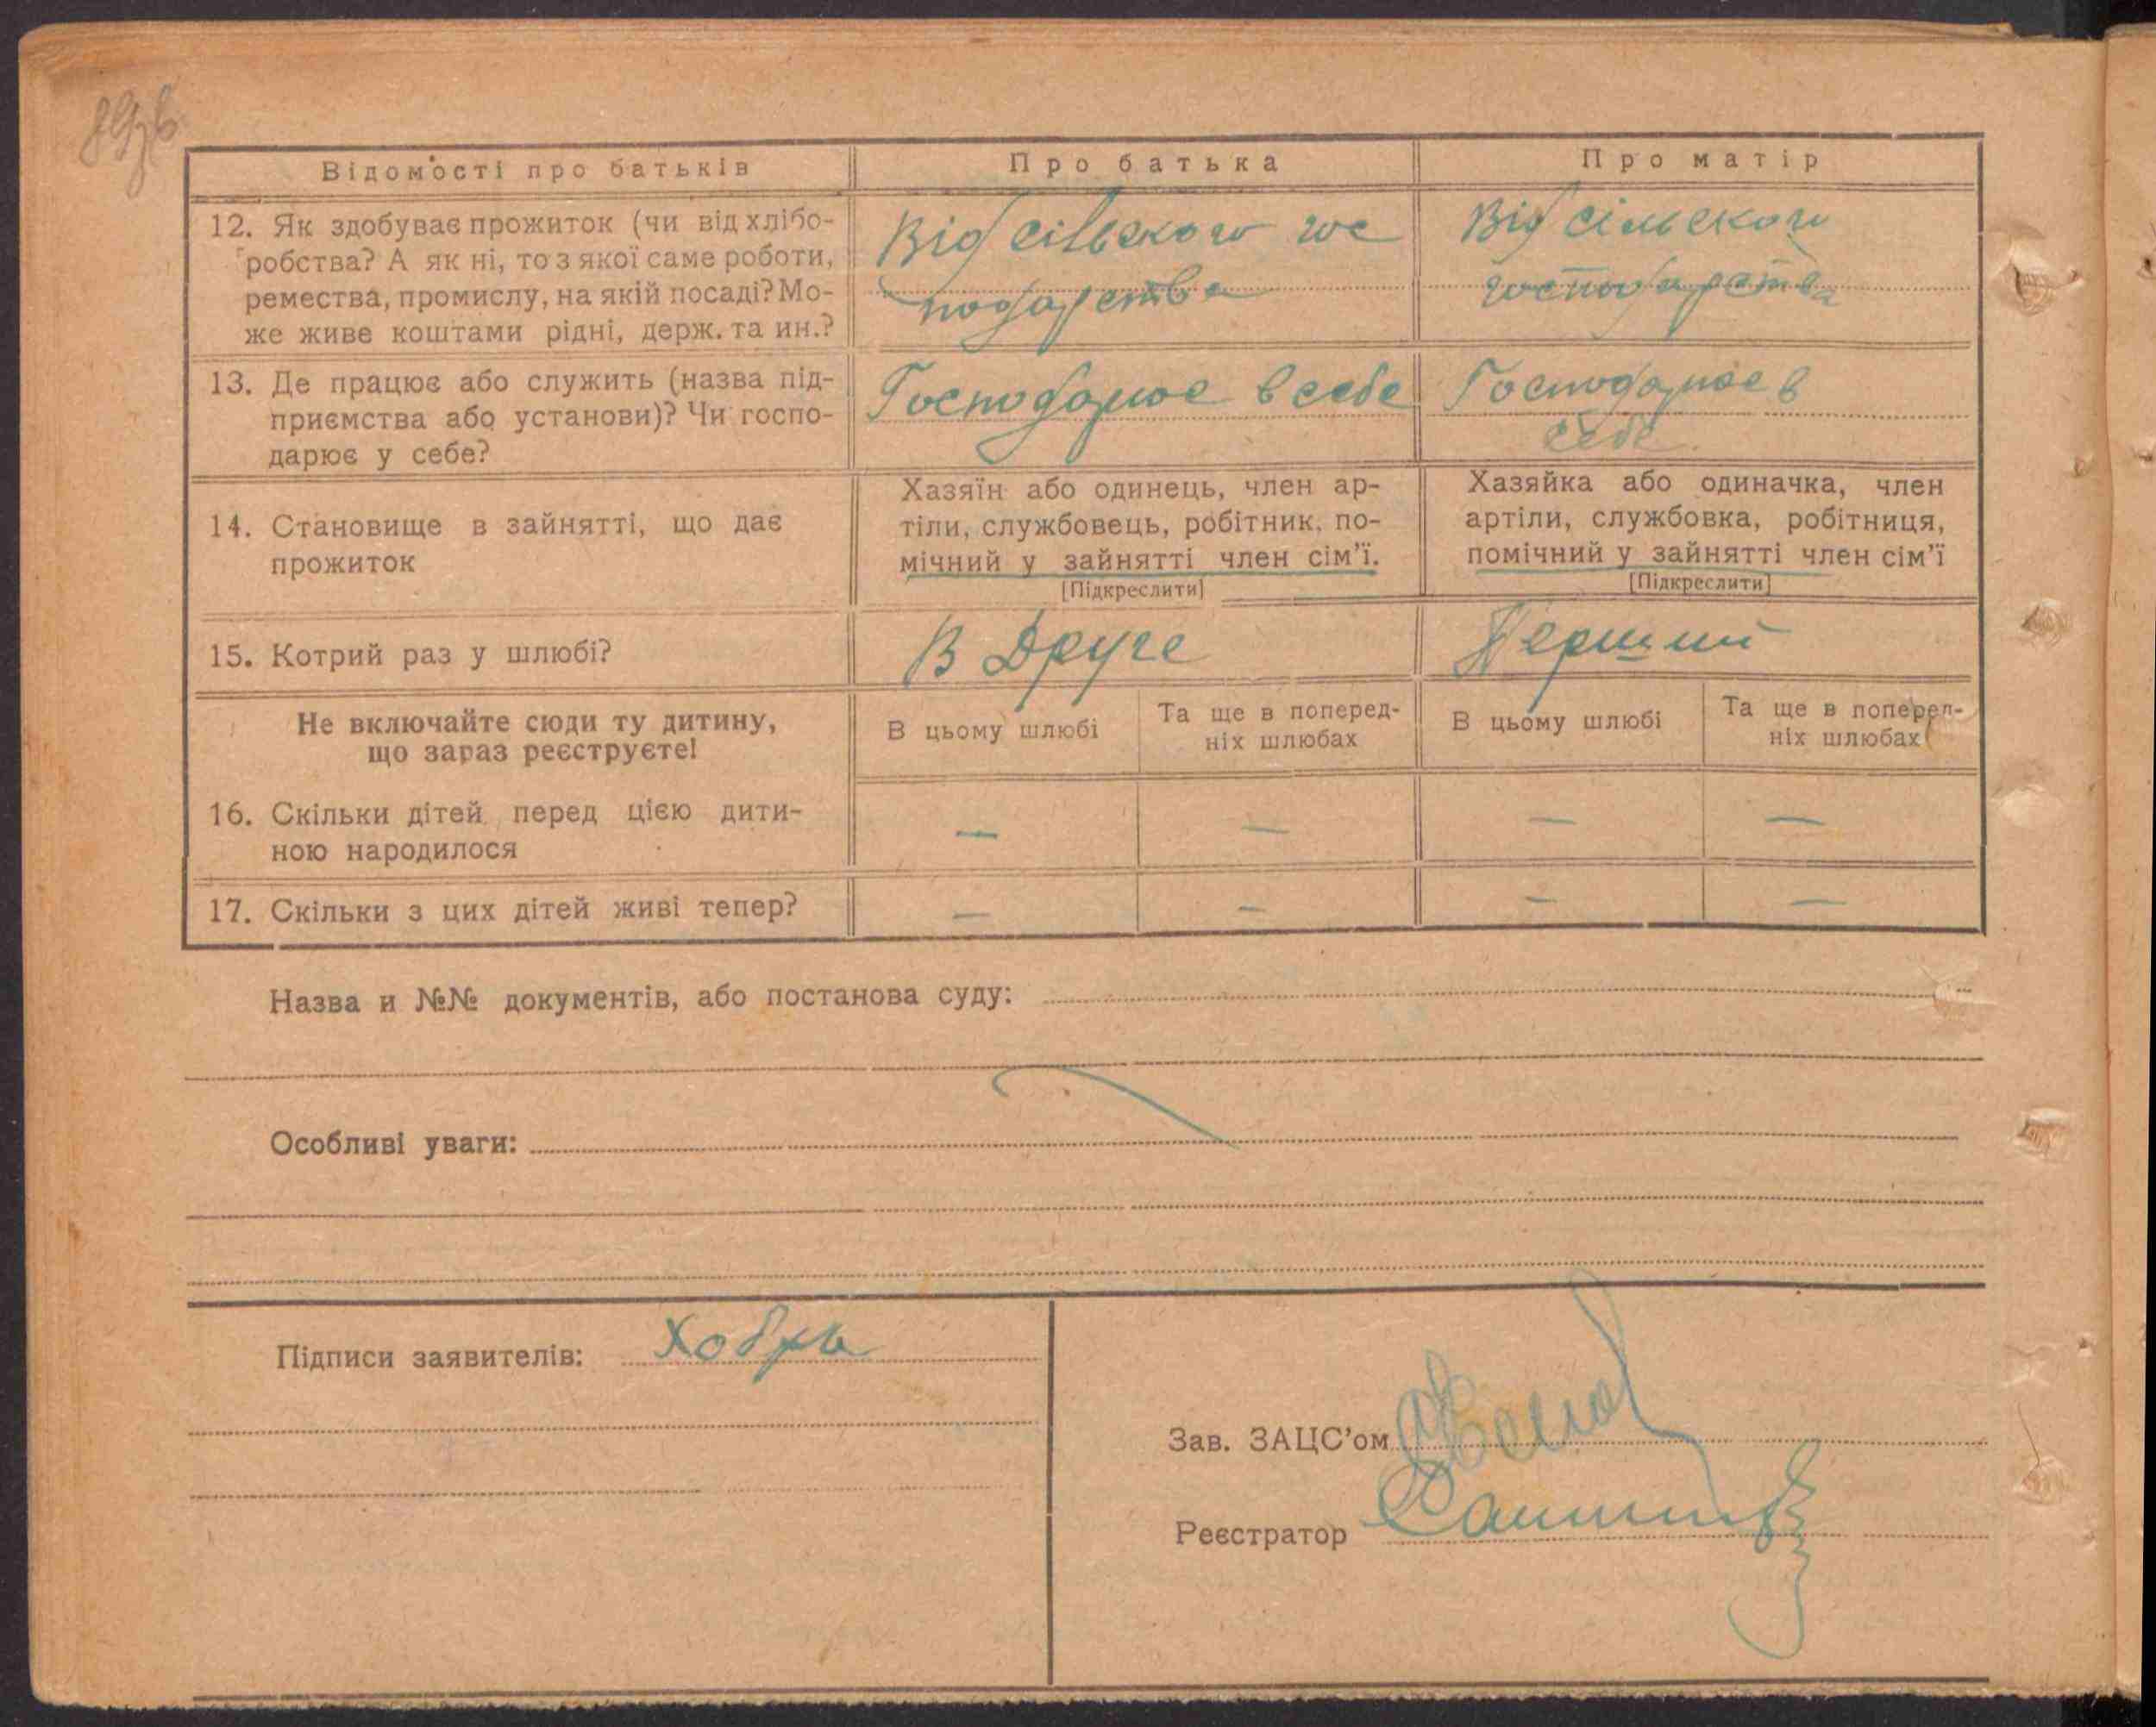 Відомості про батьків
Про батька
Про матір
12. Як здобуває прожиток (чи від хлібо-
робства? А як ні, то з якої саме роботи,
ремества, промислу, на якій посаді? Мо-
же живе коштами рідні, держ. та ин.?
Від сільского гос
подарства
Від сільского
господарства
13. Де працює або служить (назва під-
приємства або установи)? Чи госпо-
дарює у себе?
Господарює в себе
Господарює в
себе
14. Становище в зайнятті, що дає
прожиток
Хазяїн або одинець, член ар-
тіли, службовець, робітник, по-
мічний у зайнятті член сім'ї.
[Підкреслити]
Хазяйка або одиначка, член
артіли, службовка, робітниця,
помічний у зайнятті член сім'ї
[Підкреслити]
15. Котрий раз у шлюбі?
В Друге
Перший
Не включайте сюди ту дитину,
що зараз реєструєте!
В цьому шлюбі
Та ще в поперед-
ніх шлюбах
В цьому шлюбі
Та ще в поперед-
ніх шлюбах
16. Скільки дітей перед цією дити-
ною народилося
— — — —
17. Скільки з цих дітей живі тепер?
— — — —
Назва и №№ документів, або постанова суду:
Особливі уваги:
Підписи заявителів:
Зав. ЗАЦС'ом
Реєстратор